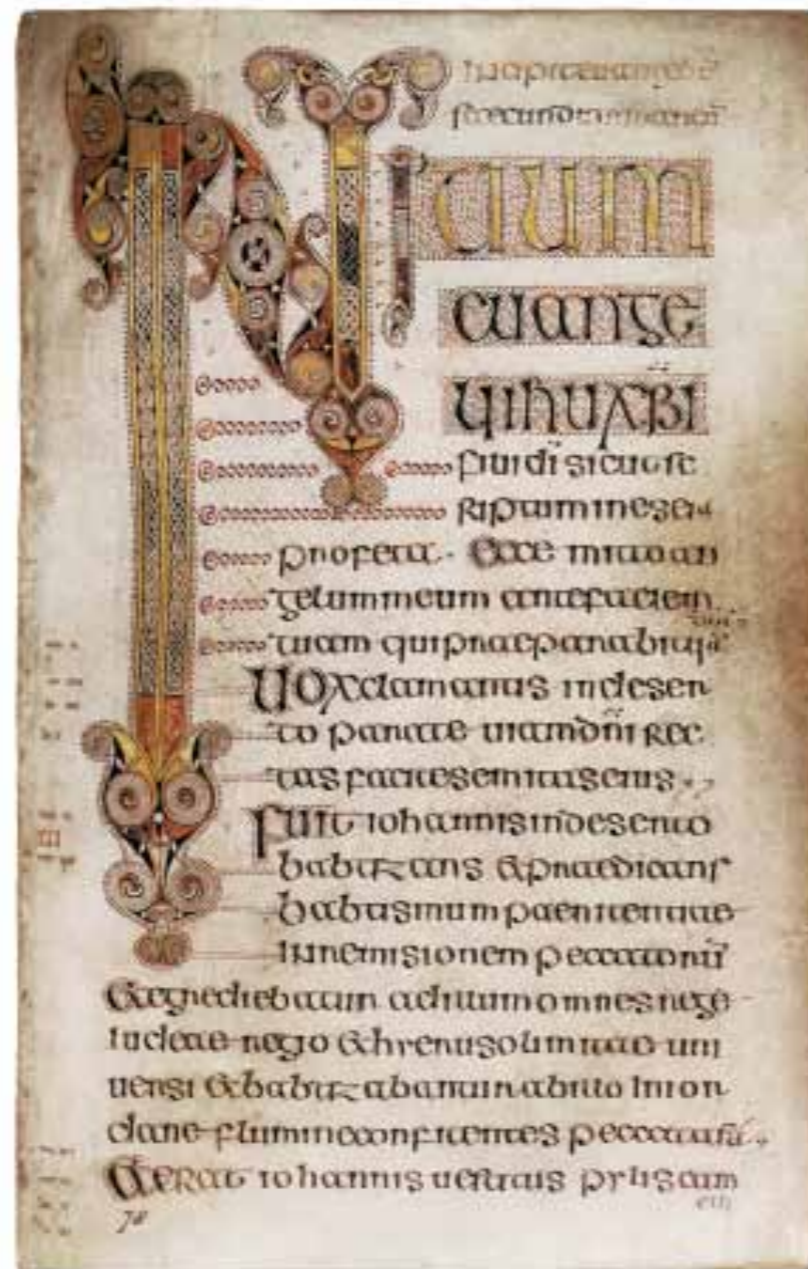 secundum marcū
INITIUM
euange
lii ihu xpi
filii di sicut sc
riptum in eseia
profeta. Ecce mitto an
gelum meum ante faciem
tuam qui praeparabit
Uox clamantis in deser
to parate uiam dni rec
tas facite semitas eius
Fuit iohannis in deserto
babtizans & praedicans
babtismum paenitentiae
in remisionem peccatorū
& egrediebatur ad illum omnes
iudeae regio & hrerusolimitae uni
uersi & babtizabantur ab illo in ior
dane flumine confitentes peccata
& erat iohannis uestitus pylis cam